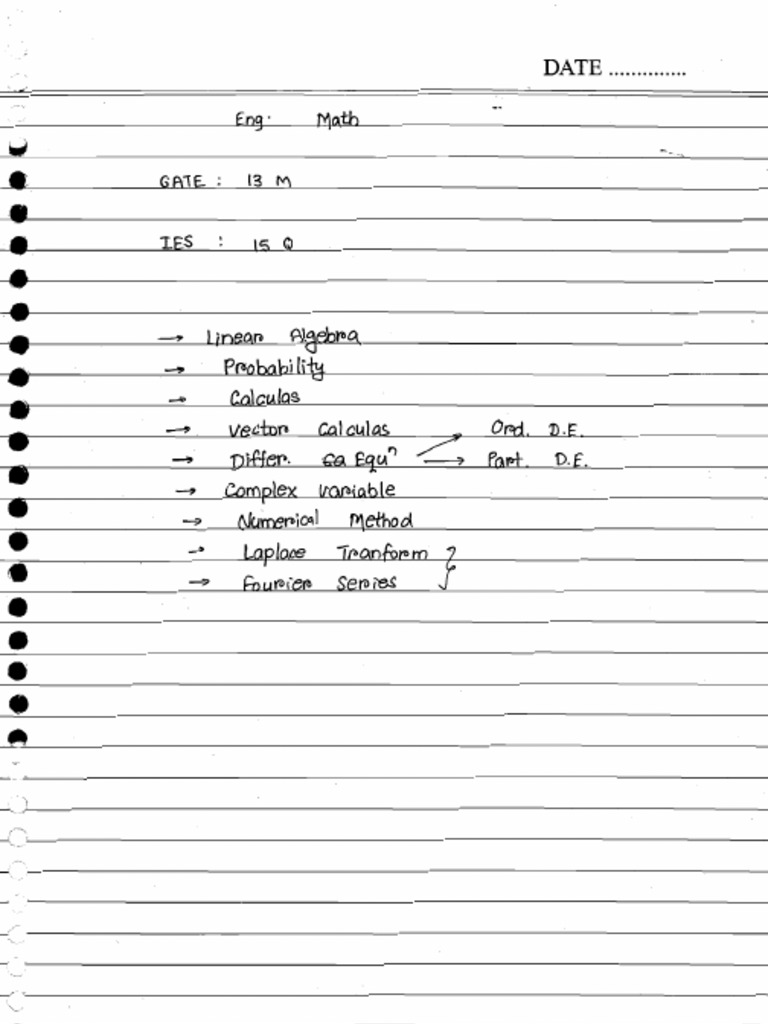 DATE ..............
Eng. Math
GATE : 13 M
IES : 15 Q
→ Linear Algebra
→ Probability
→ Calculas
→ Vector Calculas → Ord. D.E.
→ Differ. Equⁿ → Part. D.E.
→ Complex Variable
→ Numerical Method
→ Laplace Tranform }
→ Fourier Series